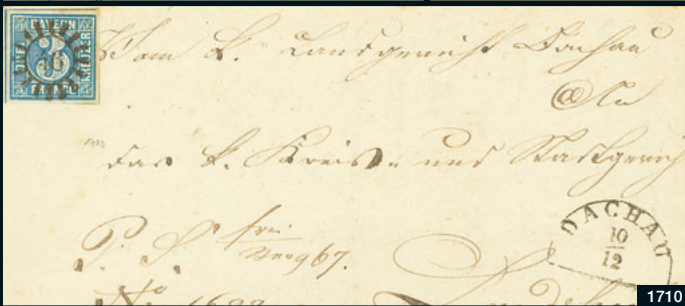 BAYERN
DREI
3
KREUZER
FRANCO
Vom k. Landgericht Dachau
An
das k. Kreis- und Stadtgerich
P. S. frei
No 967.
DACHAU
10
12
No
1710